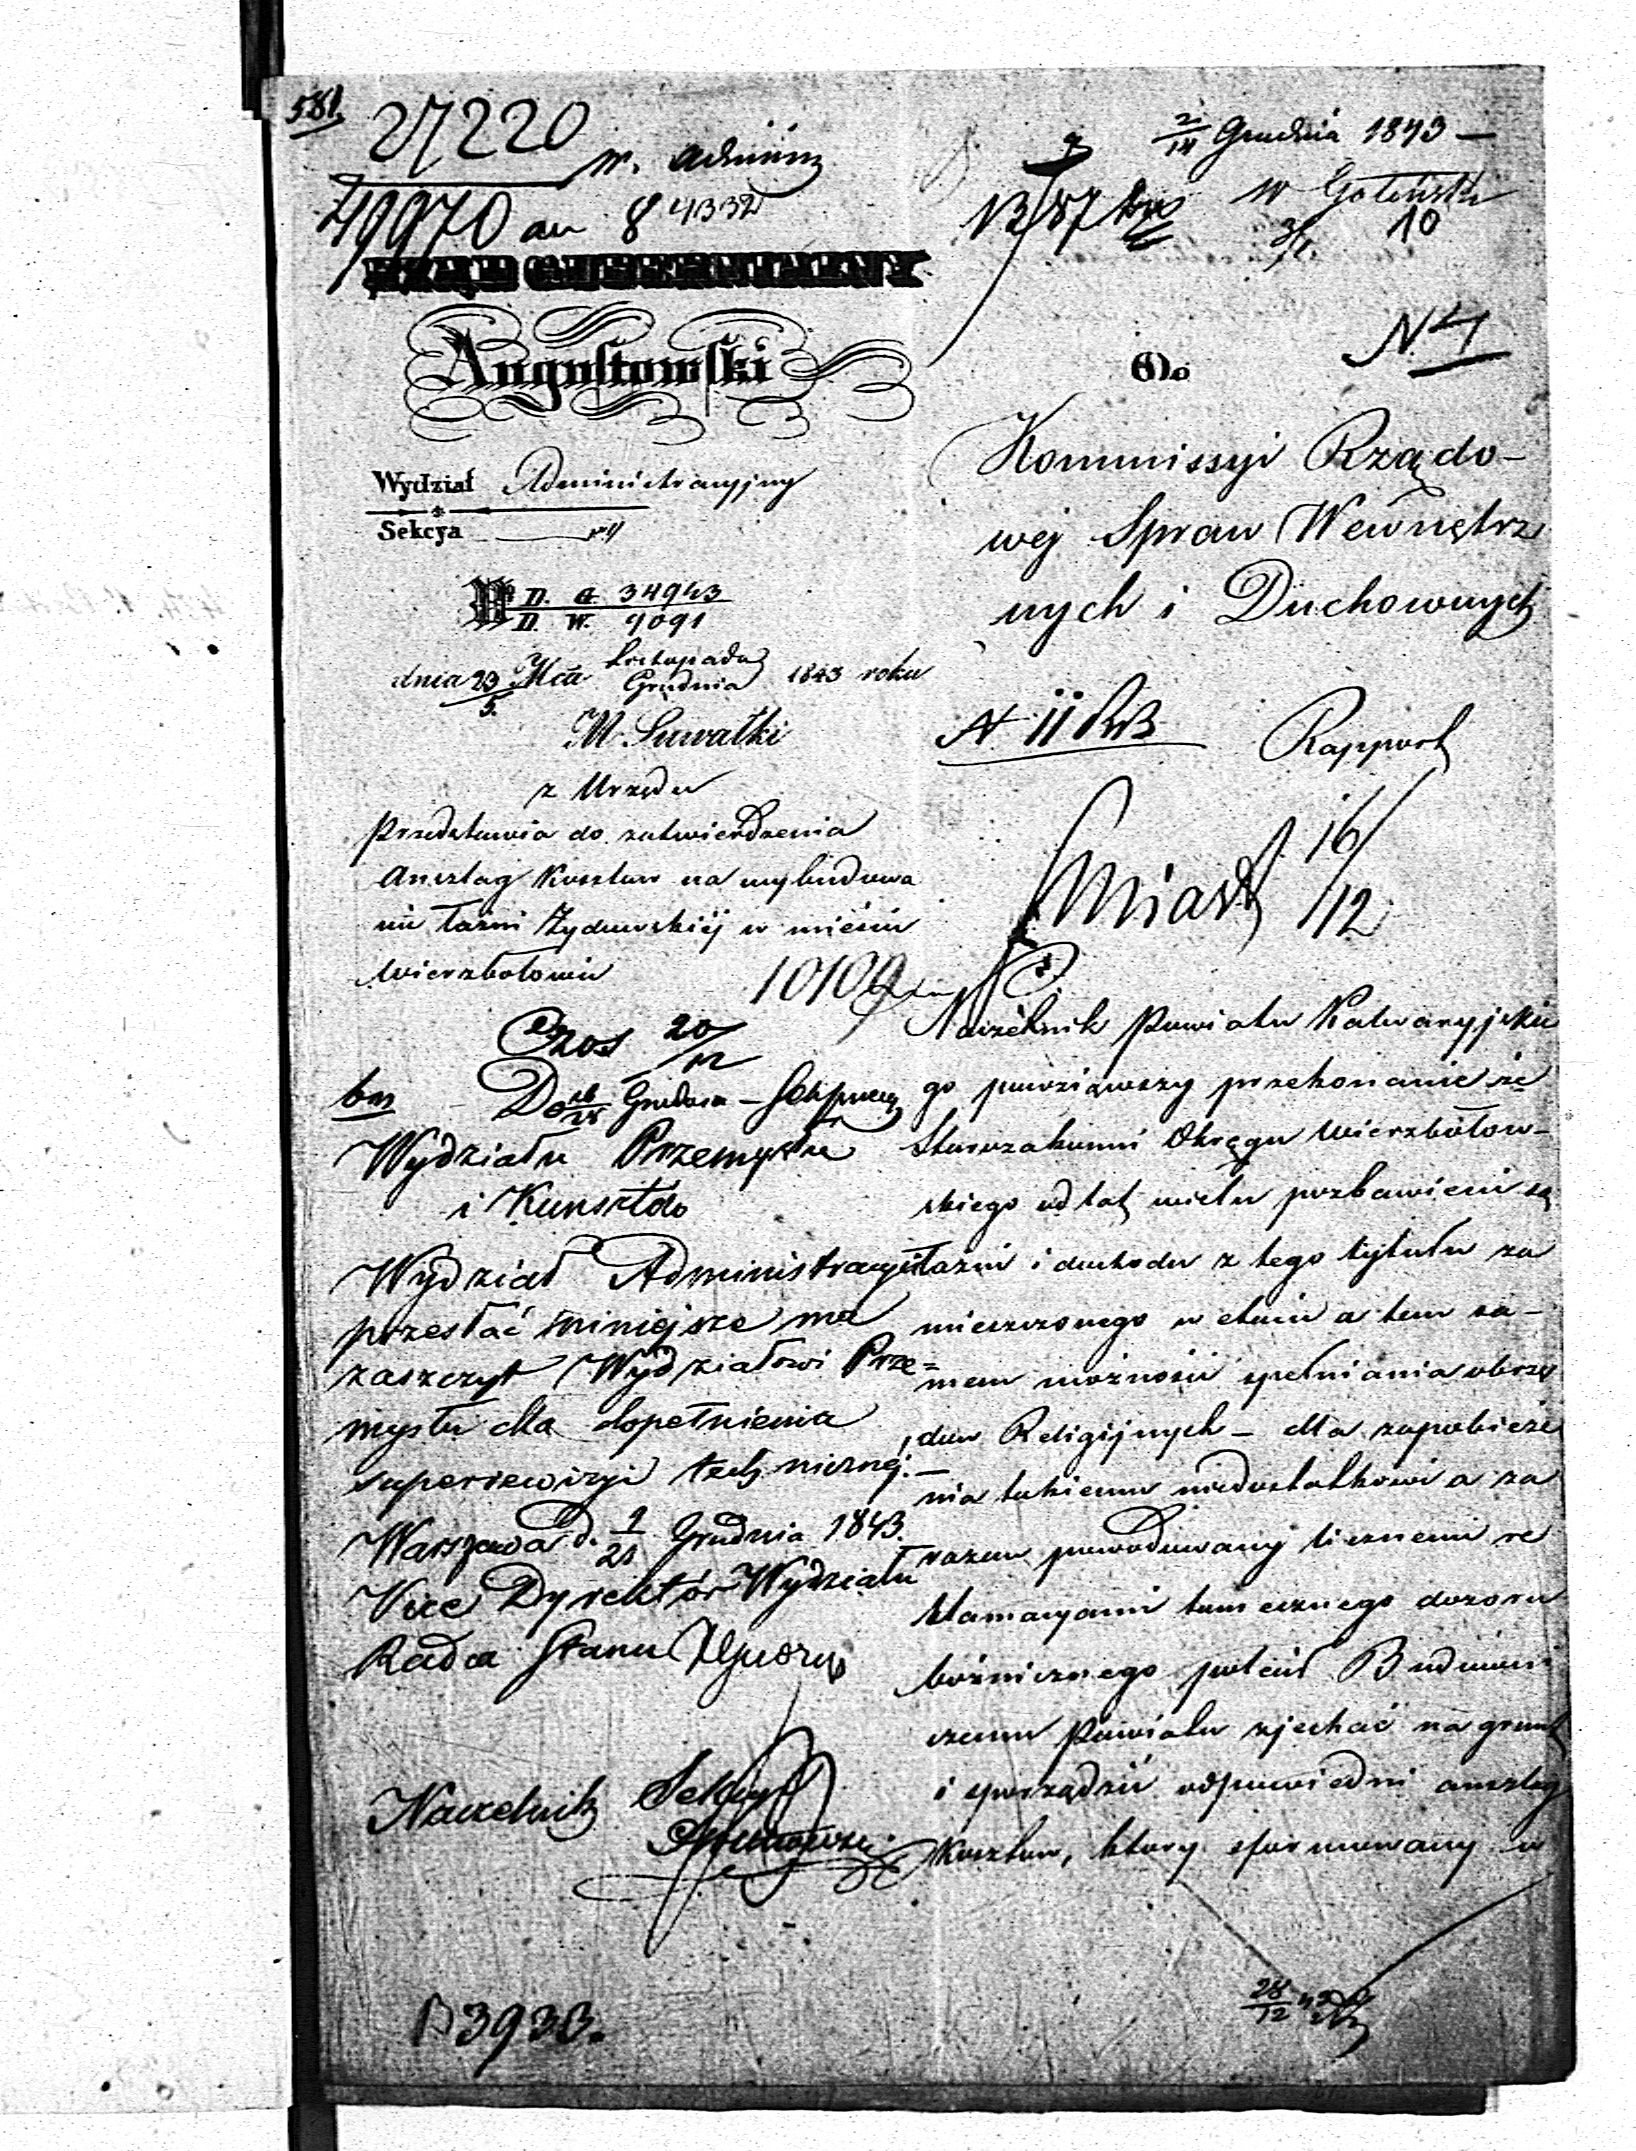 581
27220
w. admin
49970 an 8 4332
2/14 Grudnia 1843 —
13/87
10
RZĄD GUBERNIALNY
Augustowski
Wydział Administracyjny
Sekcya
No D. G. 34943
D. W. 9091
dnia 23/5 Mca Listopada/Grudnia 1843 roku
M. Suwałki
z Urzędu
Przedstawia do zatwierdzenia
Anszlag kosztów na wybudowa
nie łaźni Żydowskiej w mieście
Wierzbołowie
10109
Czos 20/12
Do 16/28 Grudnia
Wydziału Przemysłu
i Kunsztów
Wydział Administracyi
przesłać niniejsze ma
zaszczyt Wydziałowi Prze=
mysłu dla dopełnienia
superrewizyi technicznej. —
Warszawa d. 9/21 Grudnia 1843.
Vice Dyrektor Wydziału
Radca Stanu
Naczelnik Sekcyi
B 3933.
Do
N 4
Kommissyi Rządo-
wej Spraw Wewnętrz
nych i Duchownych
Rapport
Miast 16/12
Naczelnik Powiatu Kalwaryjskie
go powziąwszy przekonanie że
Starozakonni Okręgu Wierzbołow-
skiego od lat wielu pozbawieni są
łaźni i dochodu z tego tytułu za
mieszczonego w etacie a tem sa-
mem możności spełniania obrzę
dów Religijnych — dla zapobieże
nia takiemu niedostatkowi a za
razem powodowany licznemi re
klamacyami tamecznego dozoru
bóżnicznego polecił Budowni
czemu Powiatu zjechać na grunt
i sporządzić odpowiedni anszlag
kosztów, który sformowany w
28/12